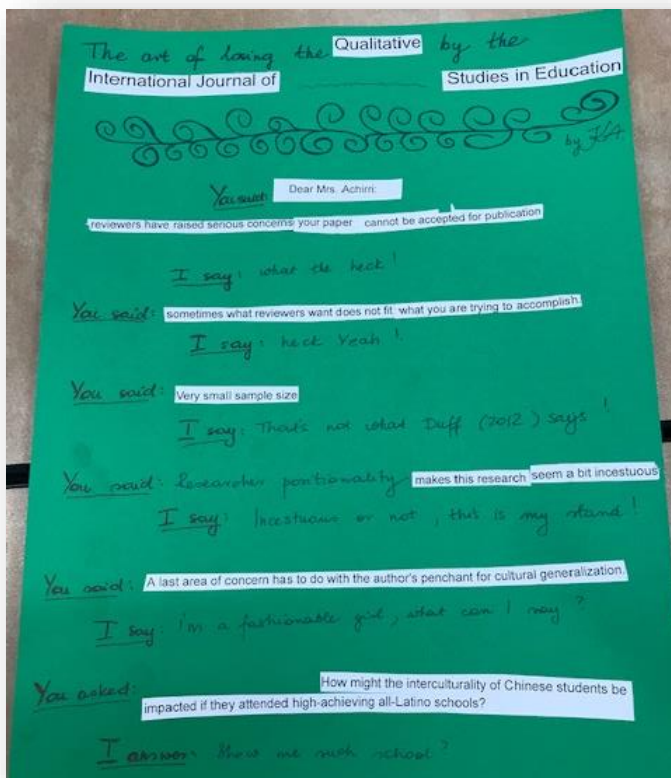 The art of losing the Qualitative by the
International Journal of Studies in Education
by KA.
You said: Dear Mrs. Achirri:
reviewers have raised serious concerns your paper cannot be accepted for publication
I say: what the heck!
You said: sometimes what reviewers want does not fit what you are trying to accomplish.
I say: heck Yeah!
You said: Very small sample size
I say: That's not what Duff (2012) says!
You said: Researcher positionality makes this research seem a bit incestuous
I say: Incestuous or not, this is my stand!
You said: A last area of concern has to do with the author's penchant for cultural generalization.
I say: I'm a fashionable girl, what can I say?
You asked: How might the interculturality of Chinese students be
impacted if they attended high-achieving all-Latino schools?
I answer: Show me such school?